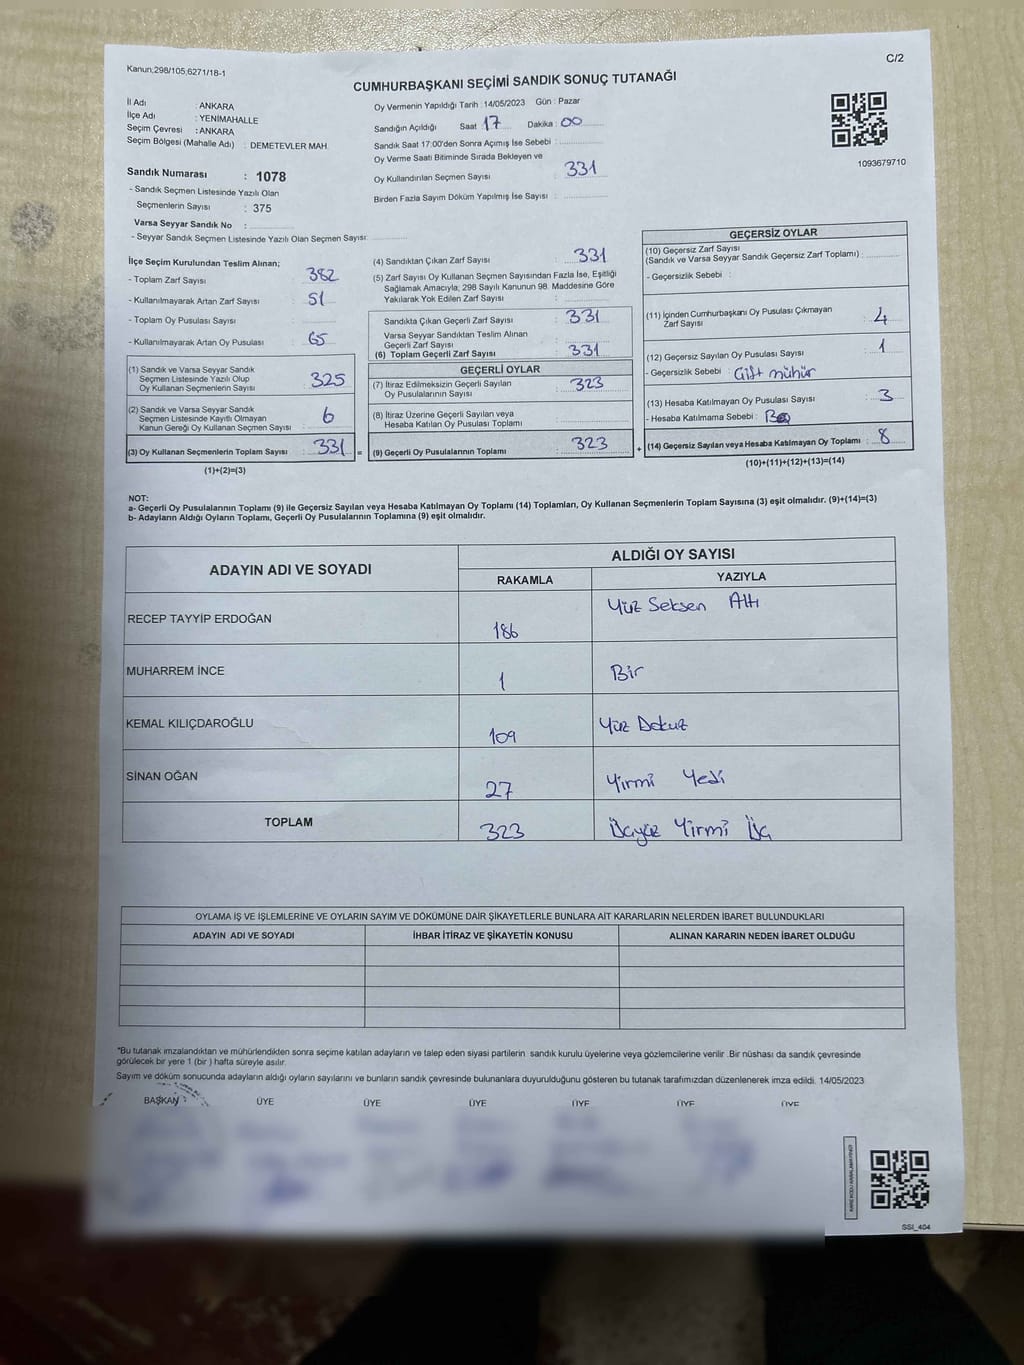 Kanun;298/105,6271/18-1
C/2
CUMHURBAŞKANI SEÇİMİ SANDIK SONUÇ TUTANAĞI
İl Adı : ANKARA
İlçe Adı : YENİMAHALLE
Seçim Çevresi : ANKARA
Seçim Bölgesi (Mahalle Adı) : DEMETEVLER MAH.
Sandık Numarası : 1078
- Sandık Seçmen Listesinde Yazılı Olan
Seçmenlerin Sayısı : 375
Varsa Seyyar Sandık No :
- Seyyar Sandık Seçmen Listesinde Yazılı Olan Seçmen Sayısı:
Oy Vermenin Yapıldığı Tarih : 14/05/2023 Gün : Pazar
Sandığın Açıldığı Saat 17 Dakika : 00
Sandık Saat 17:00'den Sonra Açımış İse Sebebi :
Oy Verme Saati Bitiminde Sırada Bekleyen ve
Oy Kullandırılan Seçmen Sayısı : 331
Birden Fazla Sayım Döküm Yapılmış İse Sayısı :
1093679710
İlçe Seçim Kurulundan Teslim Alınan;
- Toplam Zarf Sayısı : 382
- Kullanılmayarak Artan Zarf Sayısı : 51
- Toplam Oy Pusulası Sayısı :
- Kullanılmayarak Artan Oy Pusulası : 65
(1) Sandık ve Varsa Seyyar Sandık
Seçmen Listesinde Yazılı Olup
Oy Kullanan Seçmenlerin Sayısı : 325
(2) Sandık ve Varsa Seyyar Sandık
Seçmen Listesinde Kayıtlı Olmayan
Kanun Gereği Oy Kullanan Seçmen Sayısı : 6
(3) Oy Kullanan Seçmenlerin Toplam Sayısı : 331 =
(1)+(2)=(3)
(4) Sandıktan Çıkan Zarf Sayısı : 331
(5) Zarf Sayısı Oy Kullanan Seçmen Sayısından Fazla İse, Eşitliği
Sağlamak Amacıyla; 298 Sayılı Kanunun 98. Maddesine Göre
Yakılarak Yok Edilen Zarf Sayısı :
Sandıkta Çıkan Geçerli Zarf Sayısı : 331
Varsa Seyyar Sandıktan Teslim Alınan
Geçerli Zarf Sayısı :
(6) Toplam Geçerli Zarf Sayısı : 331
GEÇERLİ OYLAR
(7) İtiraz Edilmeksizin Geçerli Sayılan
Oy Pusulalarının Sayısı : 323
(8) İtiraz Üzerine Geçerli Sayılan veya
Hesaba Katılan Oy Pusulası Toplamı :
(9) Geçerli Oy Pusulalarının Toplamı : 323 +
GEÇERSİZ OYLAR
(10) Geçersiz Zarf Sayısı
(Sandık ve Varsa Seyyar Sandık Geçersiz Zarf Toplamı) :
- Geçersizlik Sebebi :
(11) İçinden Cumhurbaşkanı Oy Pusulası Çıkmayan
Zarf Sayısı : 4
(12) Geçersiz Sayılan Oy Pusulası Sayısı : 1
- Geçersizlik Sebebi : Çift mühür
(13) Hesaba Katılmayan Oy Pusulası Sayısı : 3
- Hesaba Katılmama Sebebi :
(14) Geçersiz Sayılan veya Hesaba Katılmayan Oy Toplamı : 8
(10)+(11)+(12)+(13)=(14)
NOT:
a- Geçerli Oy Pusulalarının Toplamı (9) ile Geçersiz Sayılan veya Hesaba Katılmayan Oy Toplamı (14) Toplamları, Oy Kullanan Seçmenlerin Toplam Sayısına (3) eşit olmalıdır. (9)+(14)=(3)
b- Adayların Aldığı Oyların Toplamı, Geçerli Oy Pusulalarının Toplamına (9) eşit olmalıdır.
ADAYIN ADI VE SOYADI ALDIĞI OY SAYISI
RAKAMLA YAZIYLA
RECEP TAYYİP ERDOĞAN 186 Yüz Seksen Altı
MUHARREM İNCE 1 Bir
KEMAL KILIÇDAROĞLU 109 Yüz Dokuz
SİNAN OĞAN 27 Yirmi Yedi
TOPLAM 323 Üçyüz Yirmi Üç
OYLAMA İŞ VE İŞLEMLERİNE VE OYLARIN SAYIM VE DÖKÜMÜNE DAİR ŞİKAYETLERLE BUNLARA AİT KARARLARIN NELERDEN İBARET BULUNDUKLARI
ADAYIN ADI VE SOYADI İHBAR İTİRAZ VE ŞİKAYETİN KONUSU ALINAN KARARIN NEDEN İBARET OLDUĞU
*Bu tutanak imzalandıktan ve mühürlendikten sonra seçime katılan adayların ve talep eden siyasi partilerin sandık kurulu üyelerine veya gözlemcilerine verilir .Bir nüshası da sandık çevresinde
görülecek bir yere 1 (bir ) hafta süreyle asılır.
Sayım ve döküm sonucunda adayların aldığı oyların sayılarını ve bunların sandık çevresinde bulunanlara duyurulduğunu gösteren bu tutanak tarafımızdan düzenlenerek imza edildi. 14/05/2023
BAŞKAN ÜYE ÜYE ÜYE ÜYE ÜYE ÜYE
SSİ_404